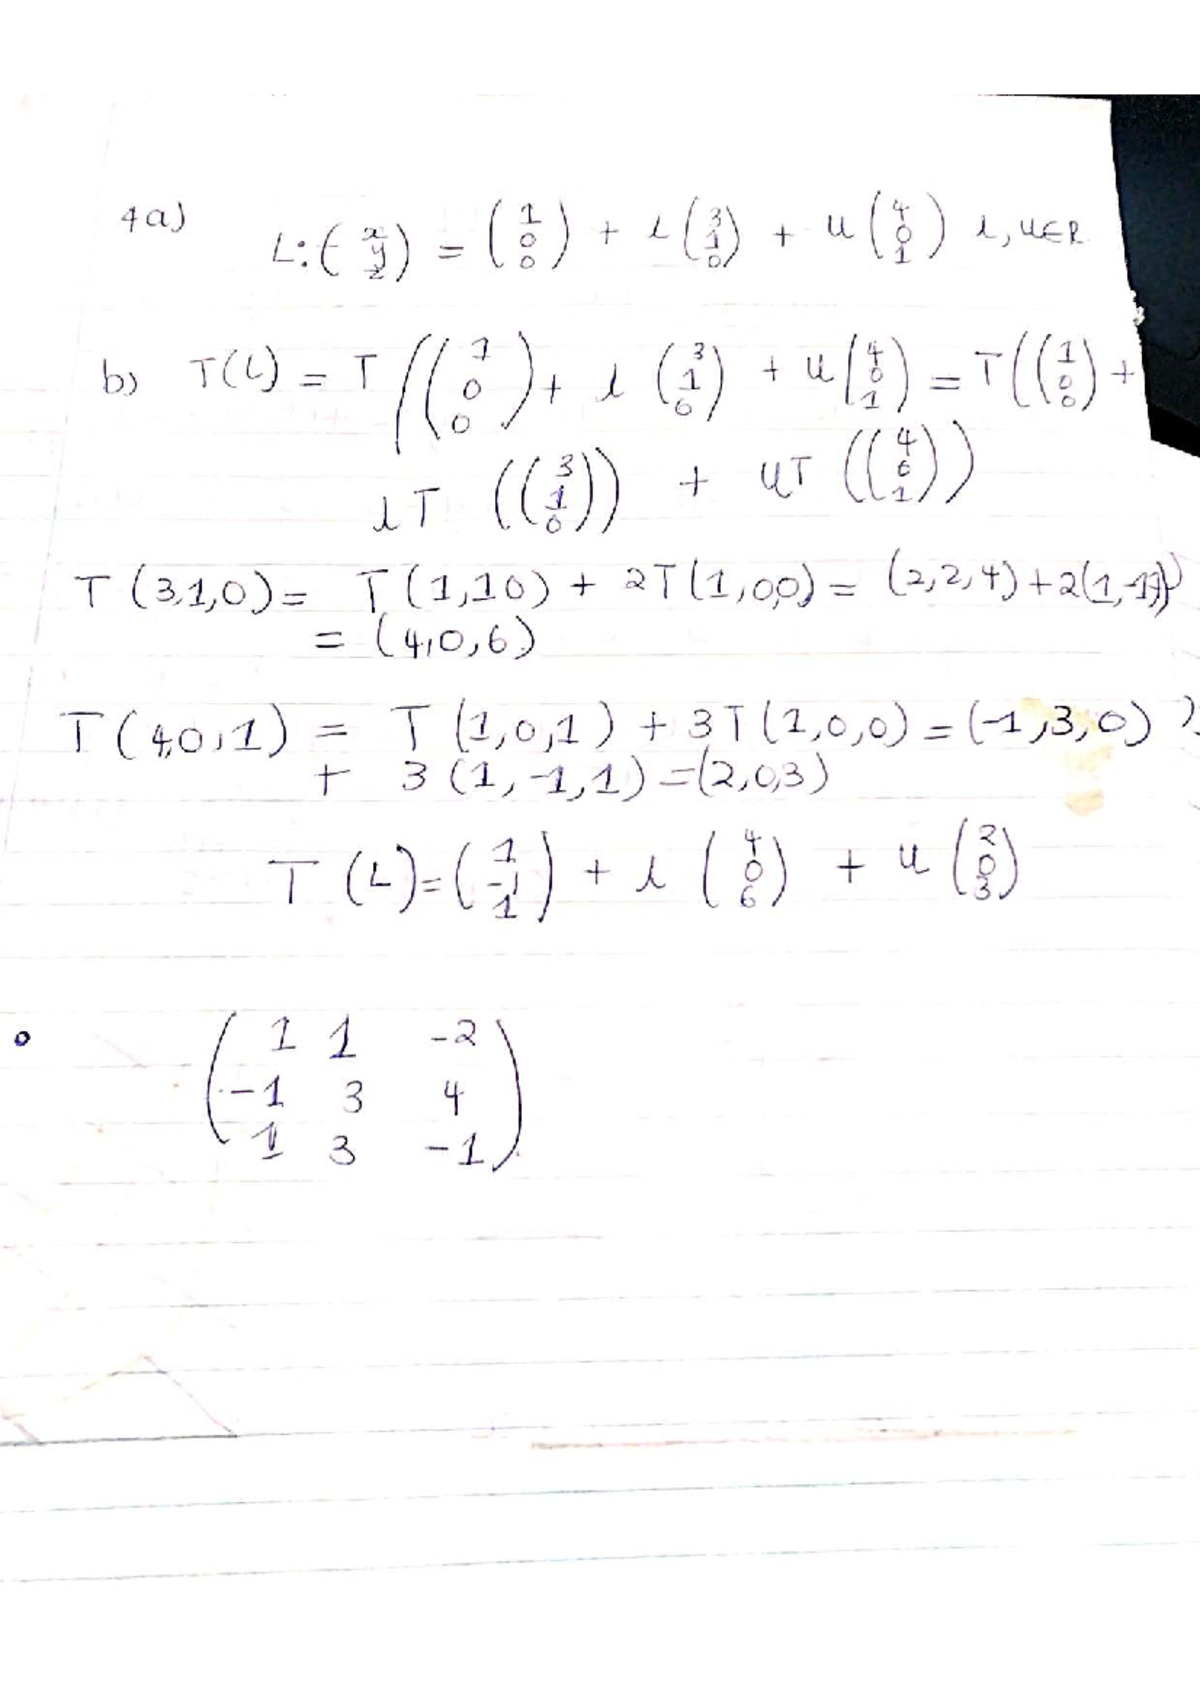 4a) L: (x y z) = (1 0 0) + l (3 1 0) + u (4 0 1) l, u∈R
b) T(L) = T ((1 0 0) + l (3 1 0) + u (4 0 1) = T((1 0 0) +
lT ((3 1 0)) + uT ((4 0 1))
T (3,1,0) = T (1,1 0) + 2T (1,0,0) = (2,2,4) + 2(1,-1,1)
= (4,0,6)
T (4,0,1) = T (1,0,1) + 3T (1,0,0) = (-1,3,0)
+ 3 (1,-1,1) = (2,0,3)
T (L) = (1 -1 1) + l (4 0 6) + u (2 0 3)
(1 1 -2
-1 3 4
1 3 -1)